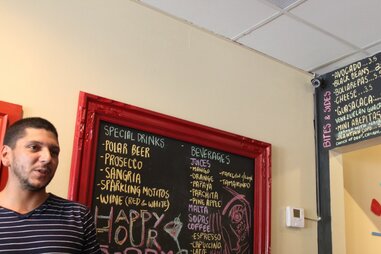 SPECIAL DRINKS
- POLAR BEER
- PROSECCO
- SANGRIA
- SPARKLING MOJITOS
- WINE (RED & WHITE)
HAPPY
HOUR
BEVERAGES
JUICES
- MANGO
- ORANGE
- PAPAYA
- PARCHITA
- PINE APPLE
- TAMARINDO
MALTA
SODAS
COFFEE
- ESPRESSO
- CAPUCCINO
BITES & SIDES
- AVOCADO
- BLACK BEANS
- BOLIAREPAS
- CHEESE
- GUASACACA
VENEZUELAN GUAC
- MINI AREPITAS